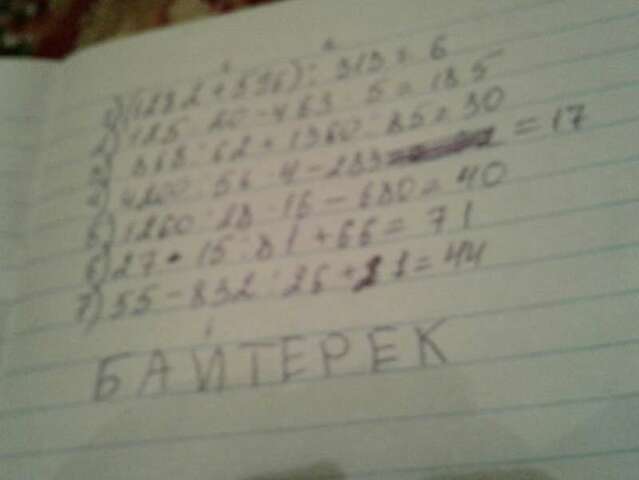 1) (1282+596) : 313 = 6
2) 125 · 20 - 463 · 5 = 185
3) 868 : 62 + 1360 : 85 = 30
4) 4200 : 56 · 4 - 283 = 17
5) 1260 : 28 · 16 - 680 = 40
6) 27 · 15 : 81 + 66 = 71
7) 55 - 832 : 26 + 21 = 44
БАЙТЕРЕК